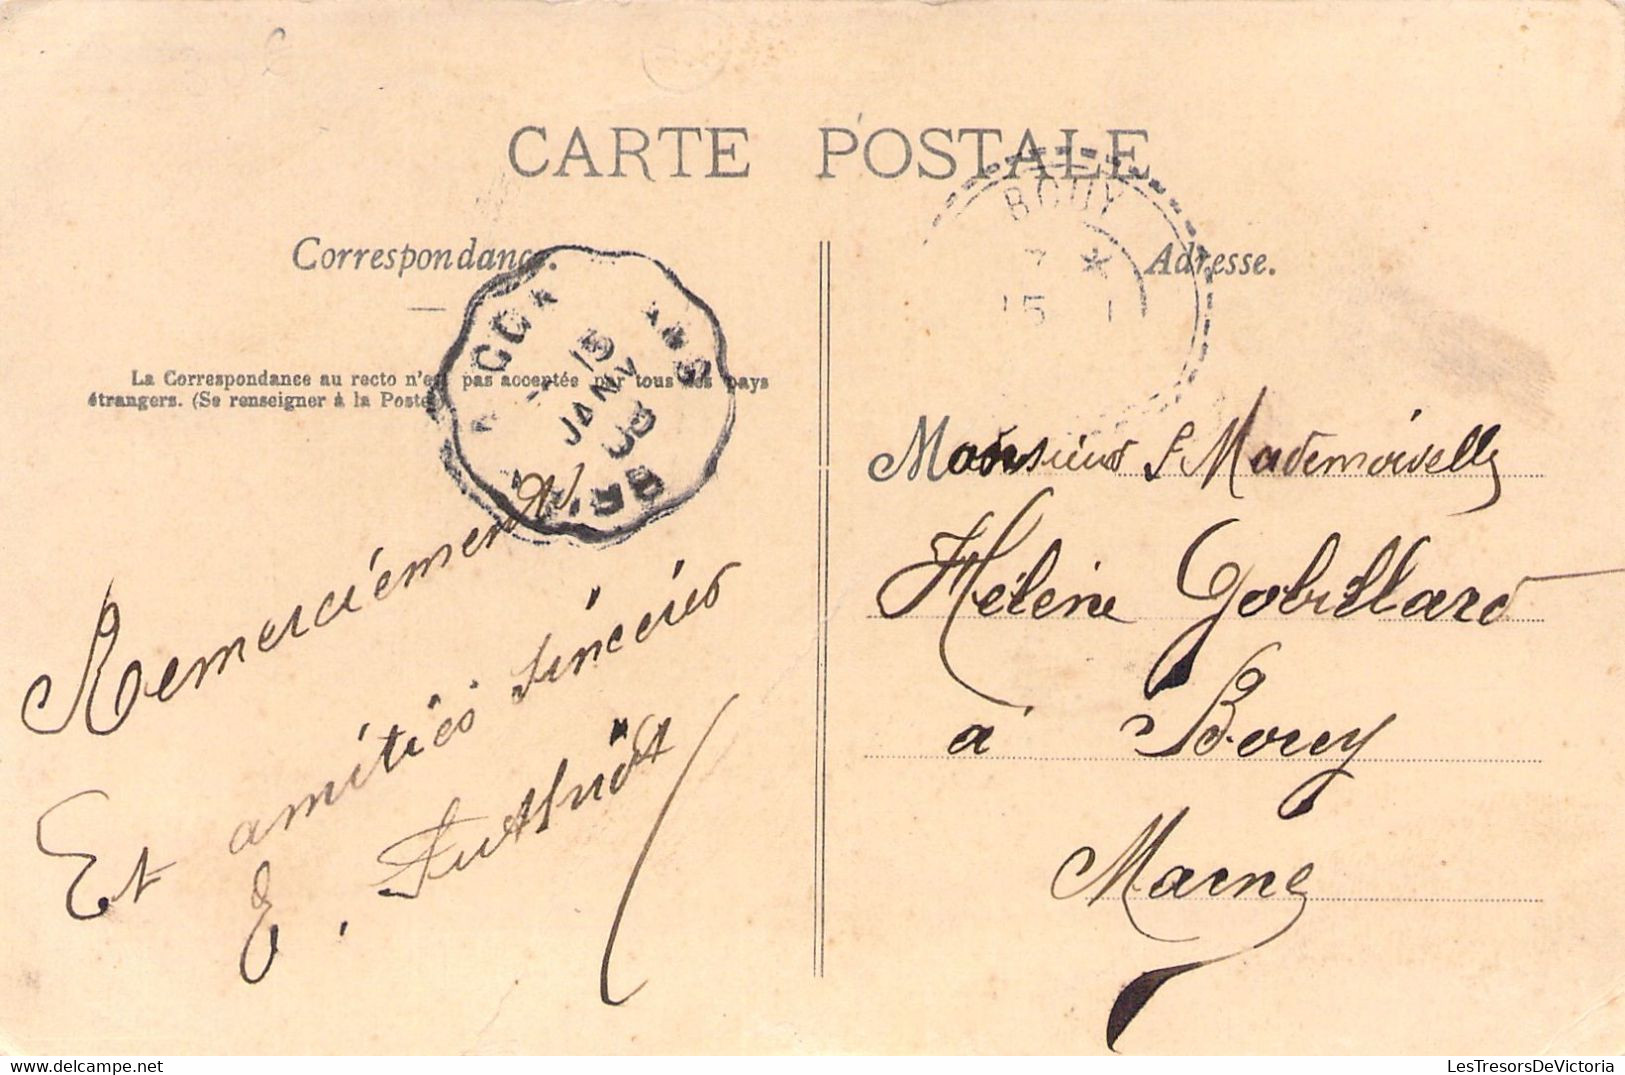 CARTE POSTALE
Correspondance.
Adresse.
La Correspondance au recto n'est pas acceptée par tous les pays
étrangers. (Se renseigner à la Poste)
BOUY
15
JANV
08
Remerciements
Et amitiés sincères
E.
Monsieur & Mademoiselle
Hélène Gobillard
à Bouy
Marne
LesTresorsDeVictoria